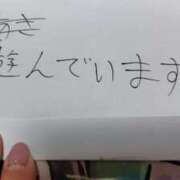 遊んでいます